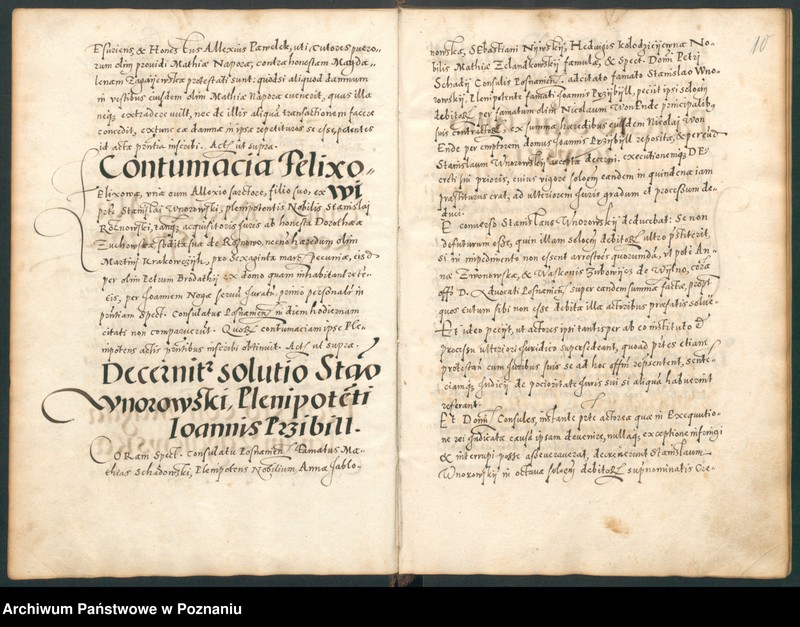 Esuriens, & Honestus Allexius Pawelek, uti Tutores puero-
rum olim providi Mathiæ Napora, contra honestam Magda-
lenam protestati sunt: quòdsi aliquod damnum
in vestibus eiusdem olim Mathiæ Napora evenerit, quas illa
neq; extradere vult, nec de illis aliquā transactionem facere
concedit, extunc ea damna in ipsa repetituros se esse, petentes
id acta pñtia inscribi. Act. ut supra.
Contumacia Pelixo-
wi
Elixowæ, unà cum Allexio sartore, filio suo, ex
pte Stanislai Wnorowski, plenipotentis Nobilis Stanislai
Roznowski, tanq; acquisitoris iuris ab honesta Dorothæa
Zuchowska subdita sua de Roznowo, necnō hæredum olim
Martini Krakowczyk, pro sexaginta marc. pecuniæ, eis
per olim Petrum Brodathy ex domo quam inhabitant rete-
tis, per Joannem Noga servū Jurat. primo personalr in
pñtiam Spect. Consulatus Posnanien. in diem hodiernam
citati non comparuerunt. Quorū contumaciam ipse Ple-
nipotens actis pñtibus inscribi obtinuit. Act. ut supra.
Decernitr solutio Stao
Wnorowski, Plenipotēti
Ioannis Przibill.
CORam Spect. Consulatu Posnanien. Famatus Ma-
thias Schadowski, Plenipotens Nobilium Annæ Jablo-
10
nowska, Sebastiani Nijwskij, Hedwigis kolodzieijewna No-
bilis Mathiæ Zelandkowskij famulæ, & Spect. Domi Petrj
Schadij Consulis Posnanien. adcitato famato Stanislao Wno-
rowskij, Plenipotente famati Joannis Przijbijll, petiit ipsi solucōem
debitorū per famatum olim Nicolaum Von Ende principalibus
suis contractorū, ex summa hæredibus eiusdem Nicolai Von
Ende per emptorem domus Joannis Przijbijll reposita, & per eund
Stanislaum Wnorowskij accepta decerni, executionemq; DE-
creti sui prioris, cuius vigore solucōem eandem in quindenā iam
præstiturus erat, ad ulteriorem Juris gradum et processum de-
duci.
E converso Stanislaus Wnorowskij deducebat: Se non
defuturum esse, quin illam solucōem debitorū ultro præstiterit,
si in impedimento non essent arrestores quorundā, ut poti An-
næ Zwonowskæ, & Waskonis de Wijlno, corā
offi D. Advocati Posnanien. super eandem summā factæ, propt
quos tutum sibi non esse debita illa actoribus præfatis solue-
Et ideo peciit, ut actores ipsi tantisper ab eo instituto &
processu ulteriori Juridico supersedeant, quoad ptes etiam
protestatū cum Juribus suis se ad hoc offm repræsentent, sente-
tiamq; Judicij de pocioritate Juris sui si aliquā habuerint
referant.
Et Domi Consules, instante pte actorea quæ in Exequutio-
ne rei Judicatæ causā ipsam devenire, nullaq; exceptione infringi
& interrupi posse asseveraverat, decreverunt Stanislaum
Wnorowskij in octava solucōem debitorū supnominatis Cre-
Archiwum Państwowe w Poznaniu